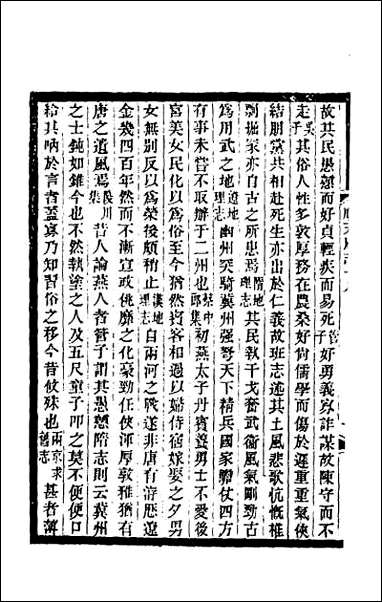 故其民愚戇而好貞輕疾而易死管子好勇義寡詐謀故陳守而不
走吳子其俗人性多敦厚務在農桑好尚儒學而傷於遲重重氣俠
結朋黨共相赴死生亦出於仁義故班志述其土風悲歌慷慨椎
剽掘冢亦自古之所患焉隋地理志其民執干戈奮武衛風氣剛勁古
爲用武之地遼地理志幽州突騎冀州强弩天下精兵國家瞻仗四方
有事未嘗不取辦于二州也蔡中郎集初燕太子丹賓養勇士不愛後
宮美女民化以爲俗至今猶然賓客相過以婦侍宿嫁娶之夕男
女無別反以爲榮後頗稍止漢地理志自兩河之戰遂非唐有游歷遼
金幾四百年然而不漸宣政佻靡之化豪勁任俠渾厚敦雅猶有
唐之遺風焉陵川集昔人論燕人者管子謂其愚戇隋志則云冀州
之士鈍如錐今也不然執塗之人及五尺童子叩之莫不便便口
給其吶於言者蓋寡乃知習俗之移今昔攸殊也兩京求舊志甚者薄